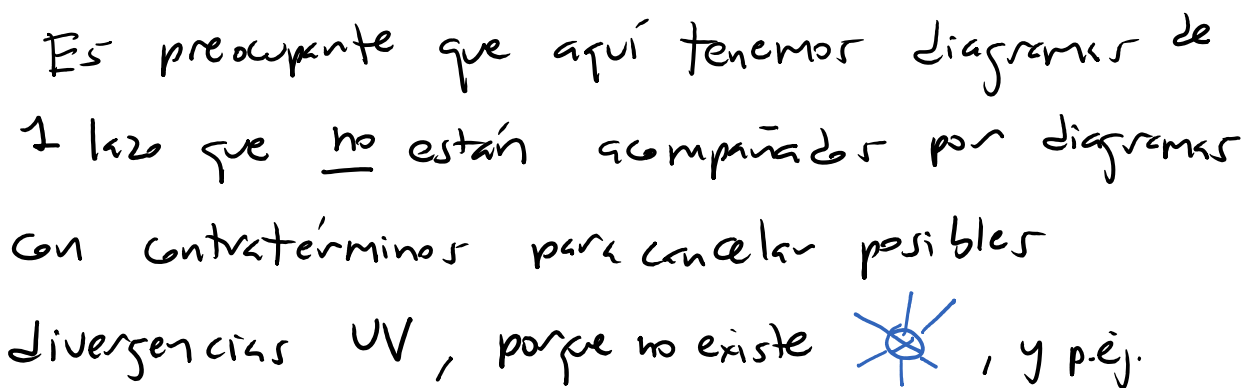 Es preocupante que aquí tenemos diagramas de
1 lazo que no están acompañados por diagramas
con contratérminos para cancelar posibles
divergencias UV, porque no existe , y p.ej.